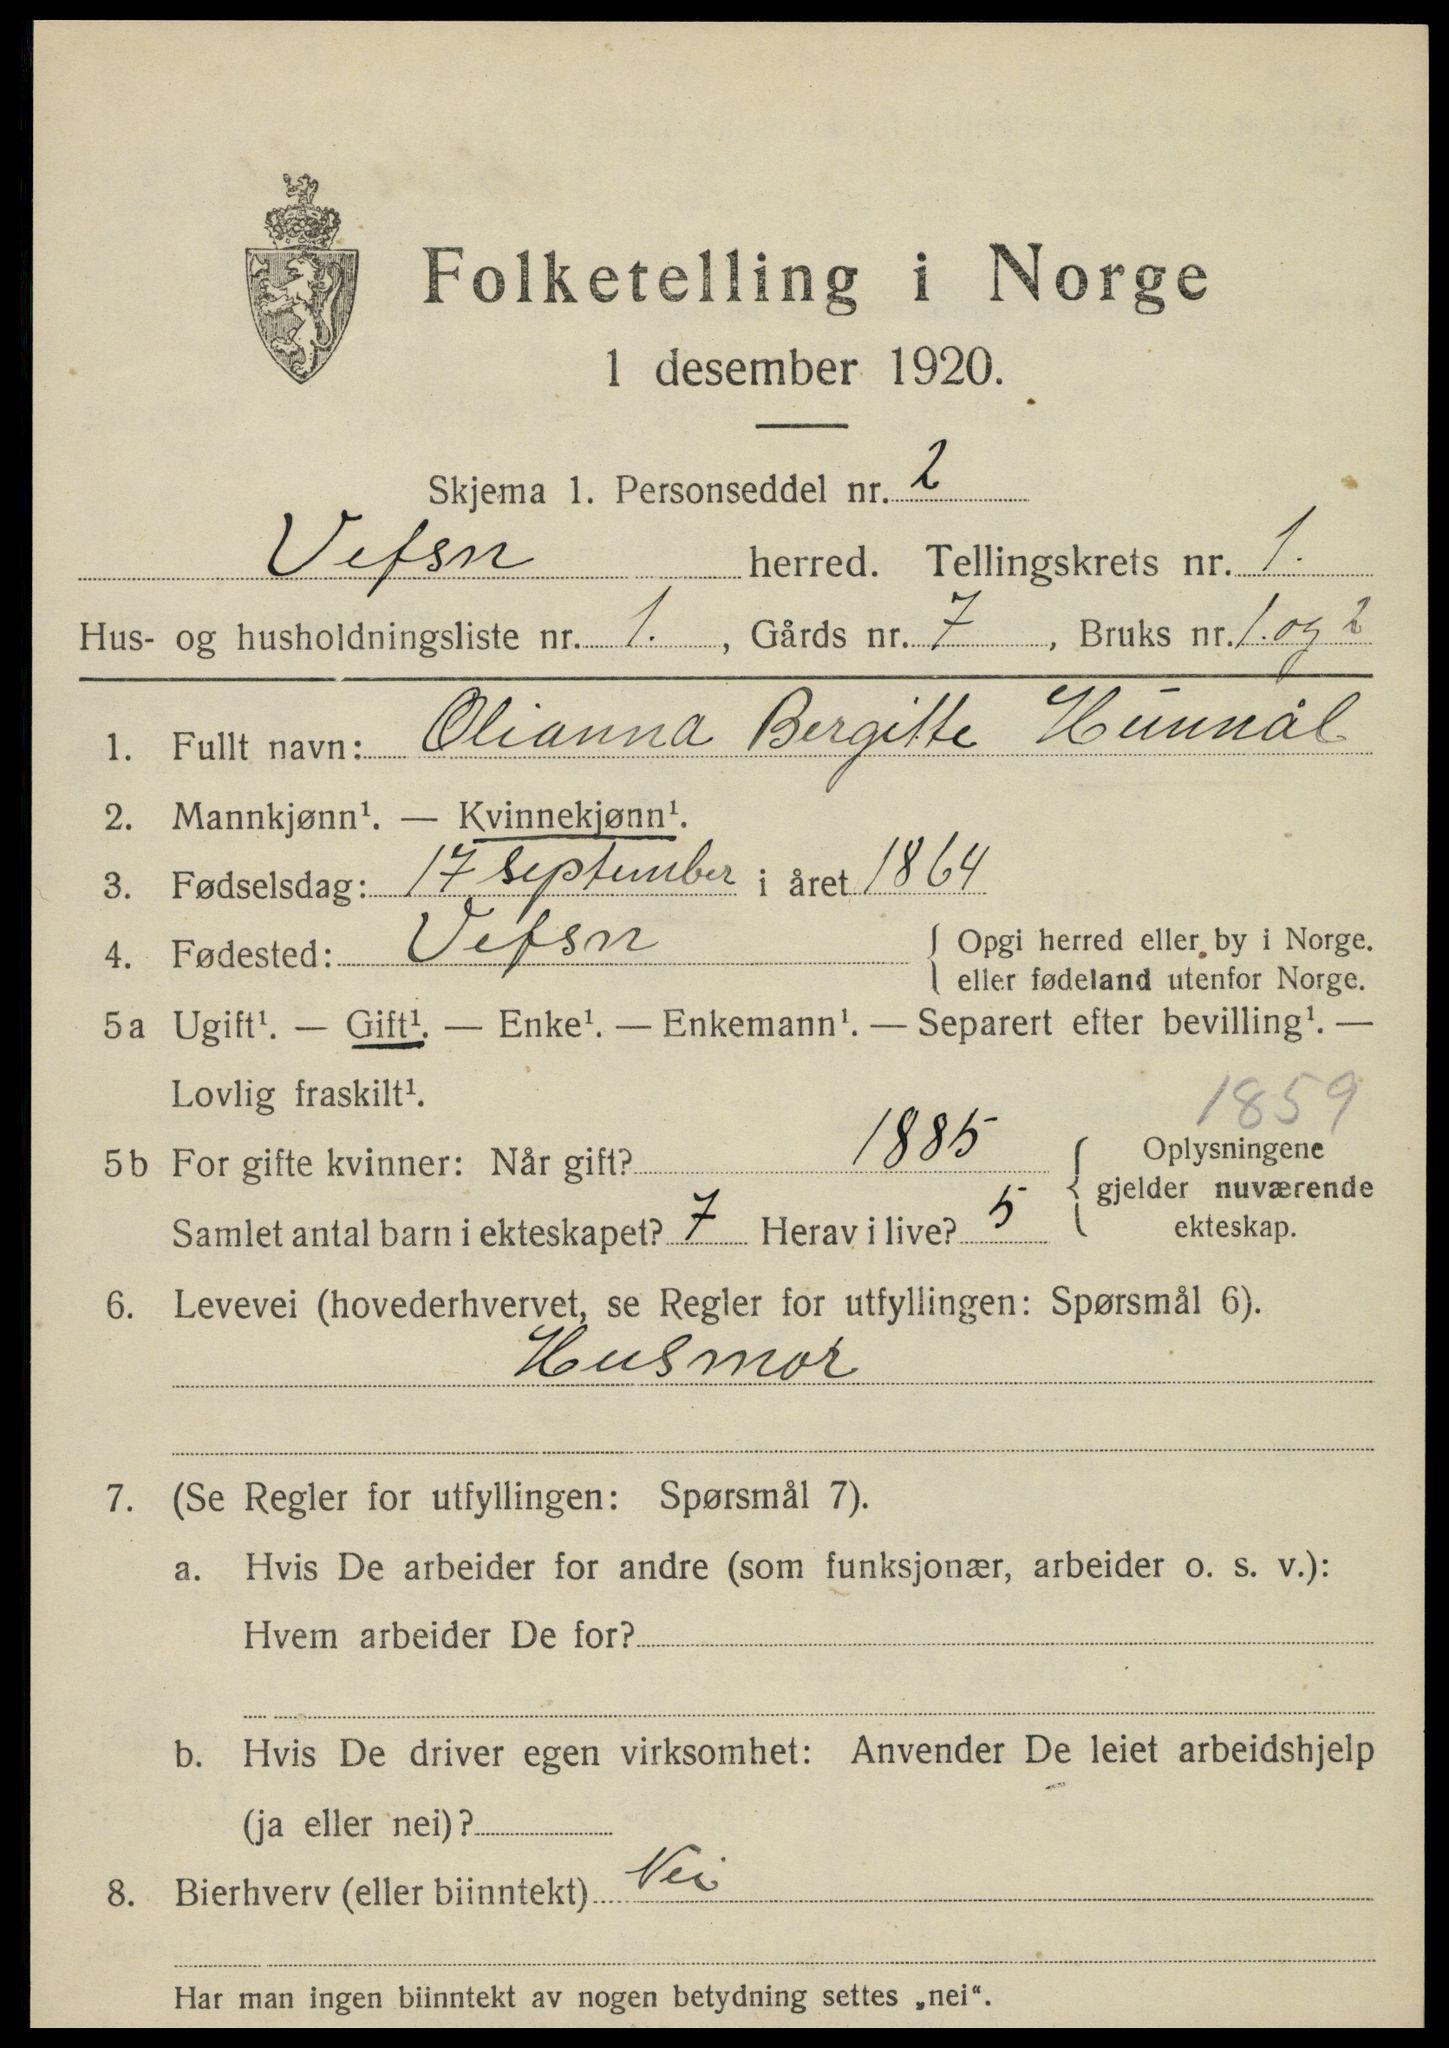 Folketelling i Norge
1 desember 1920.
Skjema 1. Personseddel nr. 2
Vefsn herred. Tellingskrets nr. 1.
Hus- og husholdningsliste nr. 1., Gårds nr. 7, Bruks nr. 1. og 2
1. Fullt navn: Olianna Bergitte Hunnål
2. Mannkjønn¹. — Kvinnekjønn¹.
3. Fødselsdag: 17 september i året 1864
4. Fødested: Vefsn { Opgi herred eller by i Norge.
eller fødeland utenfor Norge.
5a Ugift¹. — Gift¹. — Enke¹. — Enkemann¹. — Separert efter bevilling¹. —
Lovlig fraskilt¹.
1859
5b For gifte kvinner: Når gift? 1885 { Oplysningene
gjelder nuværende
ekteskap.
Samlet antal barn i ekteskapet? 7 Herav i live? 5
6. Levevei (hovederhvervet, se Regler for utfyllingen: Spørsmål 6).
Husmor
7. (Se Regler for utfyllingen: Spørsmål 7).
a. Hvis De arbeider for andre (som funksjonær, arbeider o. s. v.):
Hvem arbeider De for?
b. Hvis De driver egen virksomhet: Anvender De leiet arbeidshjelp
(ja eller nei)?
8. Bierhverv (eller biinntekt) Nei
Har man ingen biinntekt av nogen betydning settes „nei“.